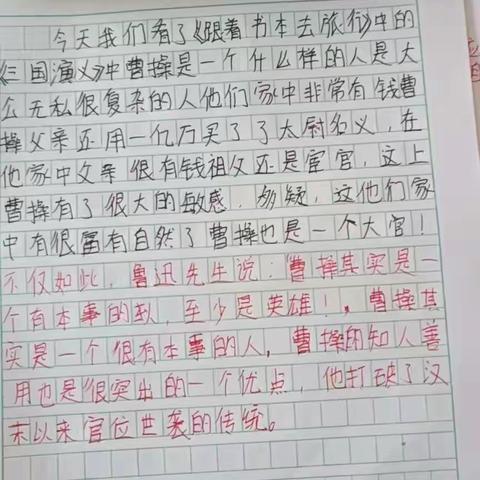 今天我们看了《跟着书本去旅行》中的
《三国演义》中曹操是一个什么样的人是大
公无私很复杂的人他们家中非常有钱曹
操父亲还用一亿万买了了太尉名义，在
他家中父亲很有钱祖父还是宦官，这上
曹操有了很大的敏感，多疑，这他们家
中有很富有自然了曹操也是一个大官！
不仅如此，鲁迅先生说：曹操其实是一
个有本事的秋，至少是英雄！，曹操其
实是一个很有本事的人，曹操的知人善
用也是很突出的一个优点，他打破了汉
末以来官位世袭的传统。